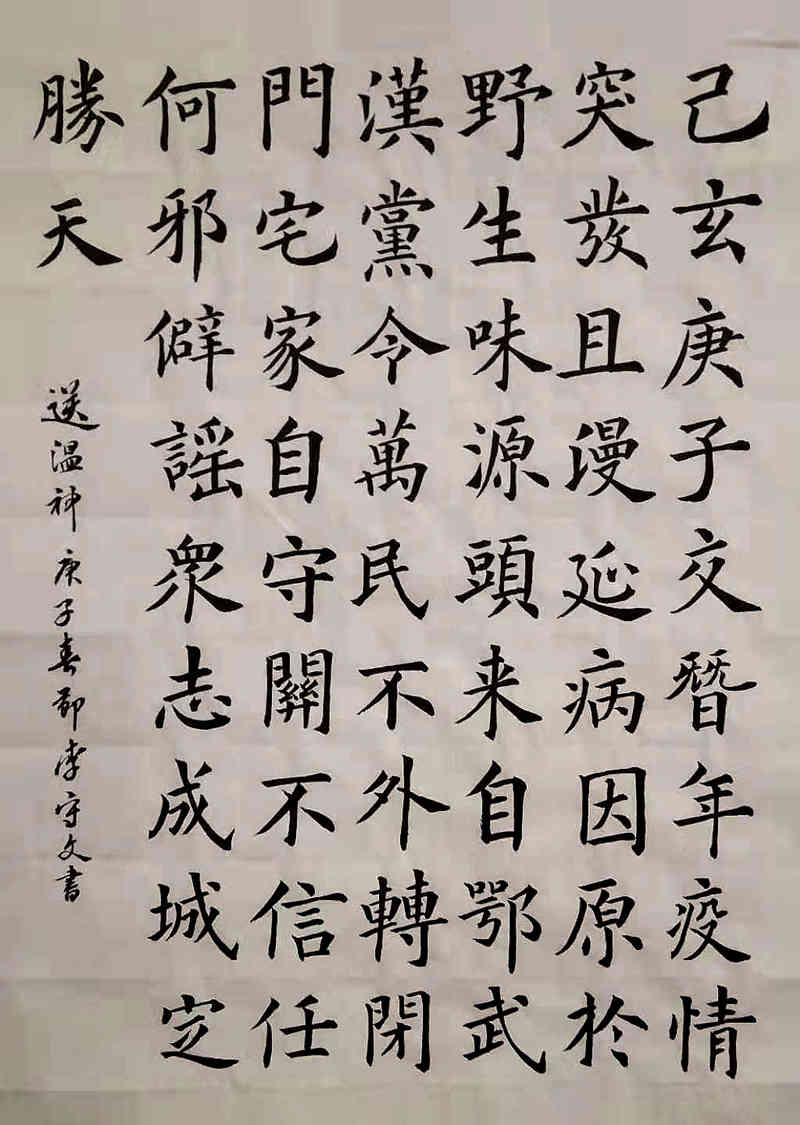 己玄庚子交替年疫情
突發且漫延病因原於
野生味源頭来自鄂武
漢黨令萬民不外轉閉
門宅家自守關不信任
何邪僻謠衆志成城定
勝天
送温神庚子春節李守文書